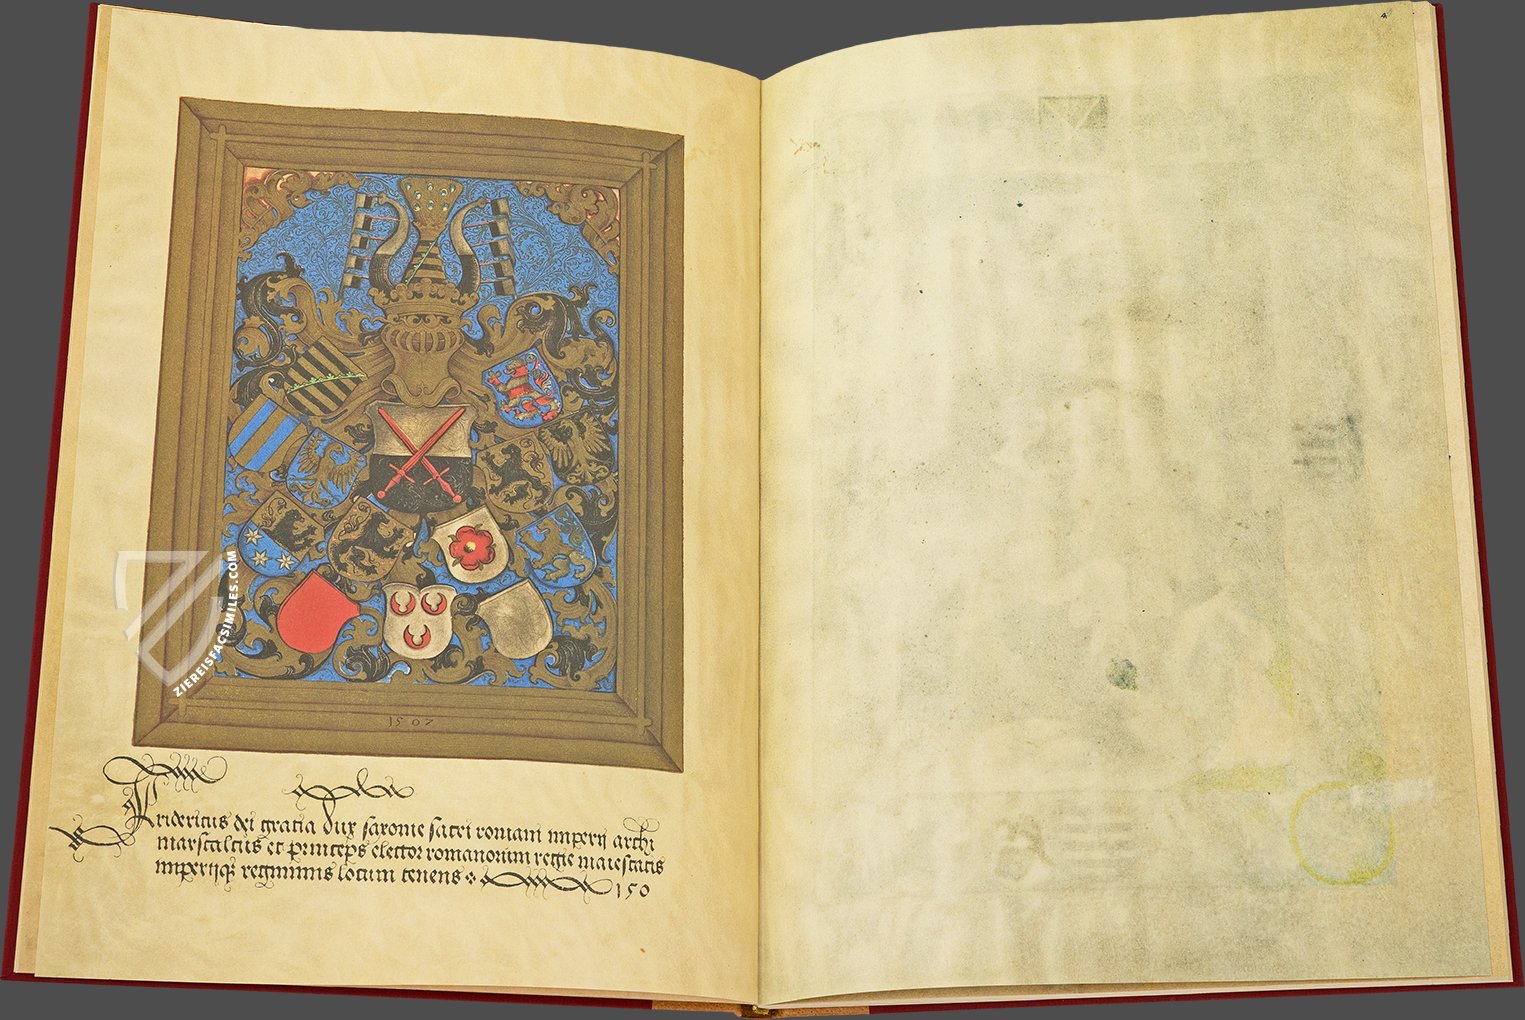 1507
Fridericus dei gratia dux saxonie sacri romani imperij archi
marscalcus et princeps elector romanorum regie maiestatis
imperijqȝ regiminis locum tenens 150
4
ZIEREISFACSIMILES.COM